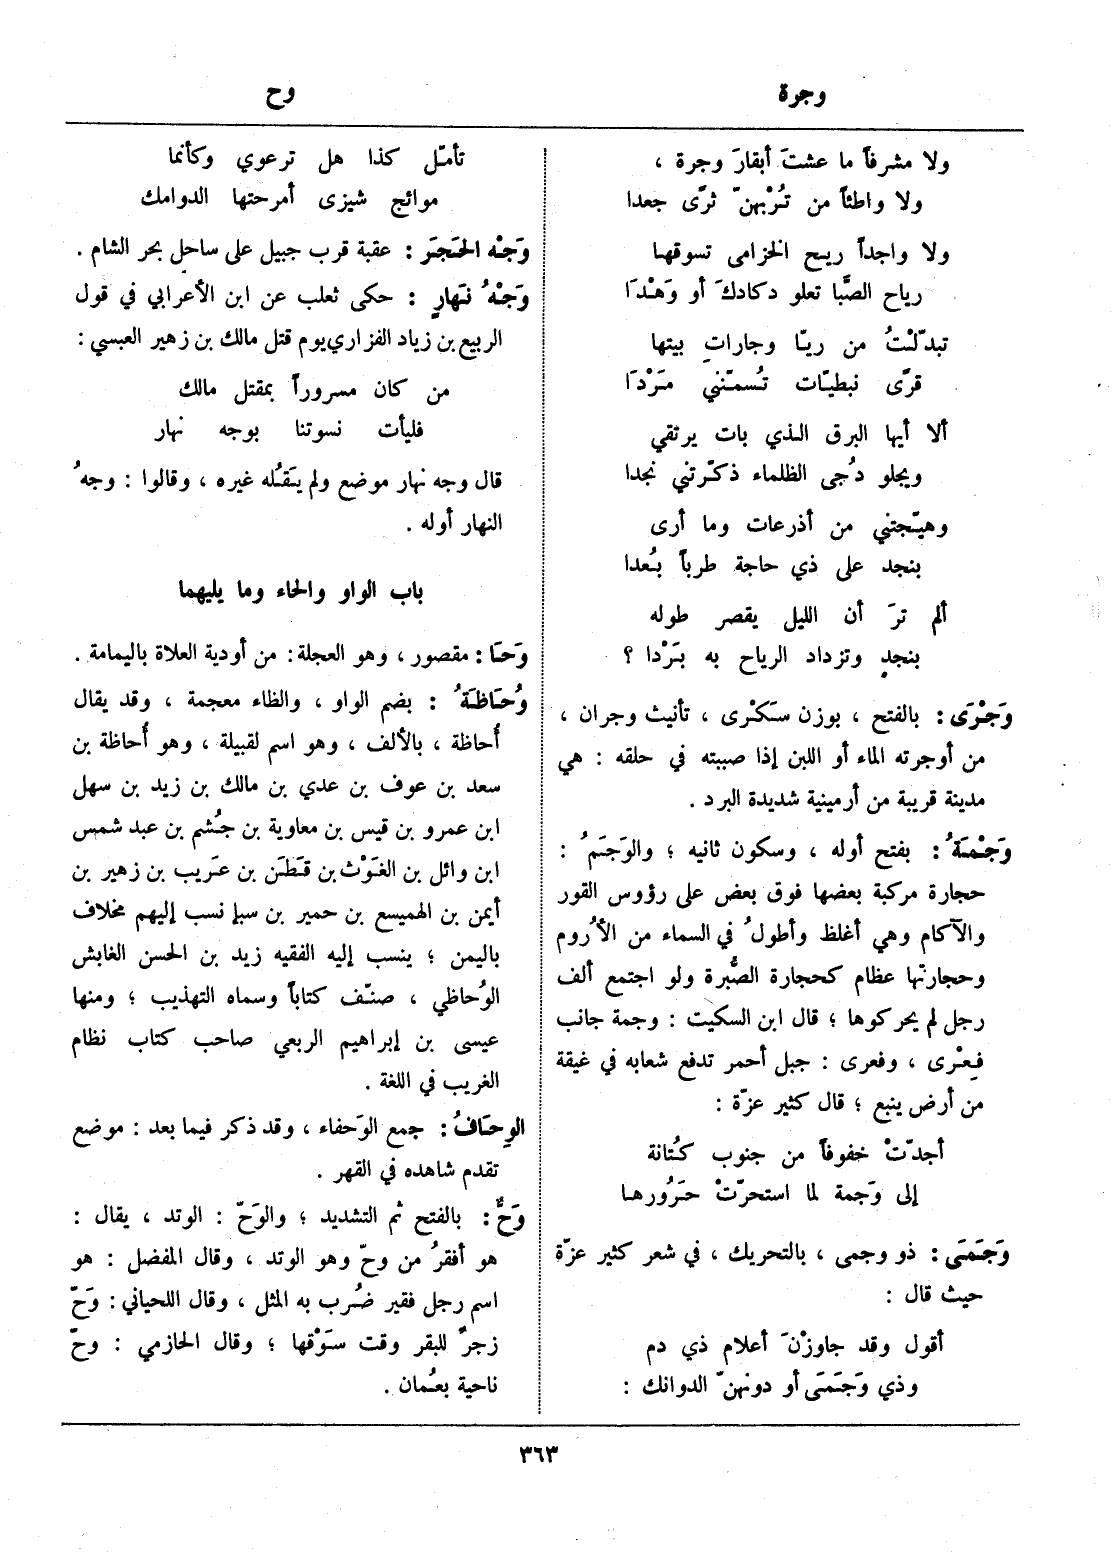 وجرة
وح
ولا مشرفاً ما عشتَ أبقارَ وجرة ،
ولا واطئاً من تُرْبهنّ ثرًى جعدا
ولا واجداً ريح الخزامى تسوقها
رياح الصَّبا تعلو دكادكَ أو وَهْدَا
تبدّلْتُ من ريّا وجاراتِ بيتها
قرًى نبطيّات تُسمنّني مَرْدَا
ألا أيها البرق الذي بات يرتقي
ويجلو دُجى الظلماء ذكّرتني نجدا
وهيّجتني من أذرعات وما أرى
بنجد على ذي حاجة طرباً بُعدا
ألم ترَ أن الليل يقصر طوله
بنجدٍ وتزداد الرياح به بَرْدا ؟
وَجْرَى : بالفتح ، بوزن سَكْرى ، تأنيث وجران ،
من أوجرته الماء أو اللبن إذا صببته في حلقه : هي
مدينة قريبة من أرمينية شديدة البرد .
وَجْمَةُ : بفتح أوله ، وسكون ثانيه ؛ والوَجَمُ :
حجارة مركبة بعضها فوق بعض على رؤوس القور
والآكام وهي أغلظ وأطولُ في السماء من الأُروم
وحجارتها عظام كحجارة الصُّبرة ولو اجتمع ألف
رجل لم يحركوها ؛ قال ابن السكيت : وجمة جانب
فِعْرى ، وفعرى : جبل أحمر تدفع شعابه في غيقة
من أرض ينبع ؛ قال كثير عزّة :
أجدّتْ خفوفاً من جنوب كُتانة
إلى وَجمة لما استحرّتْ حَرُورها
وَجَمَى : ذو وجمى ، بالتحريك ، في شعر كثير عزّة
حيث قال :
أقول وقد جاوزْنَ أعلام ذي دم
وذي وَجَمَى أو دونهنّ الدوانك :
تأمّل كذا هل ترعوي وكأنما
موائج شيزى أمرحتها الدوامك
وَجْه الحَجَر : عقبة قرب جبيل على ساحل بحر الشام .
وَجْهُ نَهارٍ : حكى ثعلب عن ابن الأعرابي في قول
الربيع بن زياد الفزاري يوم قتل مالك بن زهير العبسي :
من كان مسروراً بمقتل مالك
فليأت نسوتنا بوجه نهار
قال وجه نهار موضع ولم يَنقُله غيره ، وقالوا : وجهُ
النهار أوله .
باب الواو والحاء وما يليهما
وَحَا : مقصور ، وهو العجلة : من أودية العلاة باليمامة .
وُحَاظَةُ : بضم الواو ، والظاء معجمة ، وقد يقال
أُحاظة ، بالألف ، وهو اسم لقبيلة ، وهو أُحاظة بن
سعد بن عوف بن عدي بن مالك بن زيد بن سهل
ابن عمرو بن قيس بن معاوية بن جُشم بن عبد شمس
ابن وائل بن الغَوْث بن قَطَن بن عَريب بن زهير بن
أيمن بن الهميسع بن حمير بن سبإ نسب إليهم مخلاف
باليمن ؛ ينسب إليه الفقيه زيد بن الحسن الغابش
الوُحاظي ، صنّف كتاباً وسماه التهذيب ؛ ومنها
عيسى بن إبراهيم الربعي صاحب كتاب نظام
الغريب في اللغة .
الوِحَافُ : جمع الوَحفاء ، وقد ذكر فيما بعد : موضع
تقدم شاهده في القهر .
وَحٌّ : بالفتح ثم التشديد ؛ والوَحّ : الوتد ، يقال :
هو أفقرُ من وحّ وهو الوتد ، وقال المفضل : هو
اسم رجل فقير ضُرب به المثل ، وقال اللحياني : وَحّ
زجرٌ للبقر وقت سَوْقها ؛ وقال الحازمي : وحّ
ناحية بعُمان .
٣٦٣